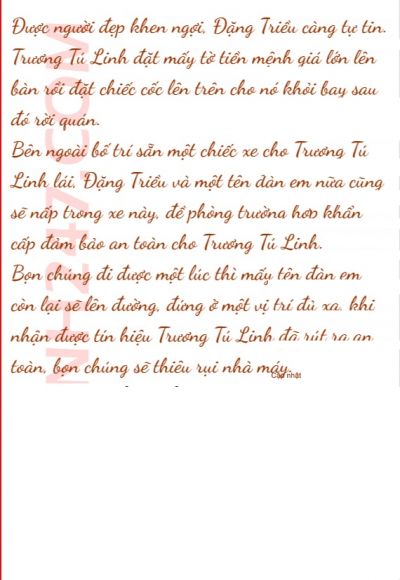 Được người đẹp khen ngợi, Đặng Triều càng tự tin.
Trương Tú Linh đặt mấy tờ tiền mệnh giá lớn lên
bàn rồi đặt chiếc cốc lên trên cho nó khỏi bay sau
đó rời quán.
Bên ngoài bố trí sẵn một chiếc xe cho Trương Tú
Linh lái, Đặng Triều và một tên đàn em nữa cũng
sẽ nấp trong xe này, đề phòng trường hợp khẩn
cấp đảm bảo an toàn cho Trương Tú Linh.
Bọn chúng đi được một lúc thì mấy tên đàn em
còn lại sẽ lên đường, đứng ở một vị trí đủ xa, khi
nhận được tín hiệu Trương Tú Linh đã rút ra an
toàn, bọn chúng sẽ thiêu rụi nhà máy.
Cập nhật
NH247.COM